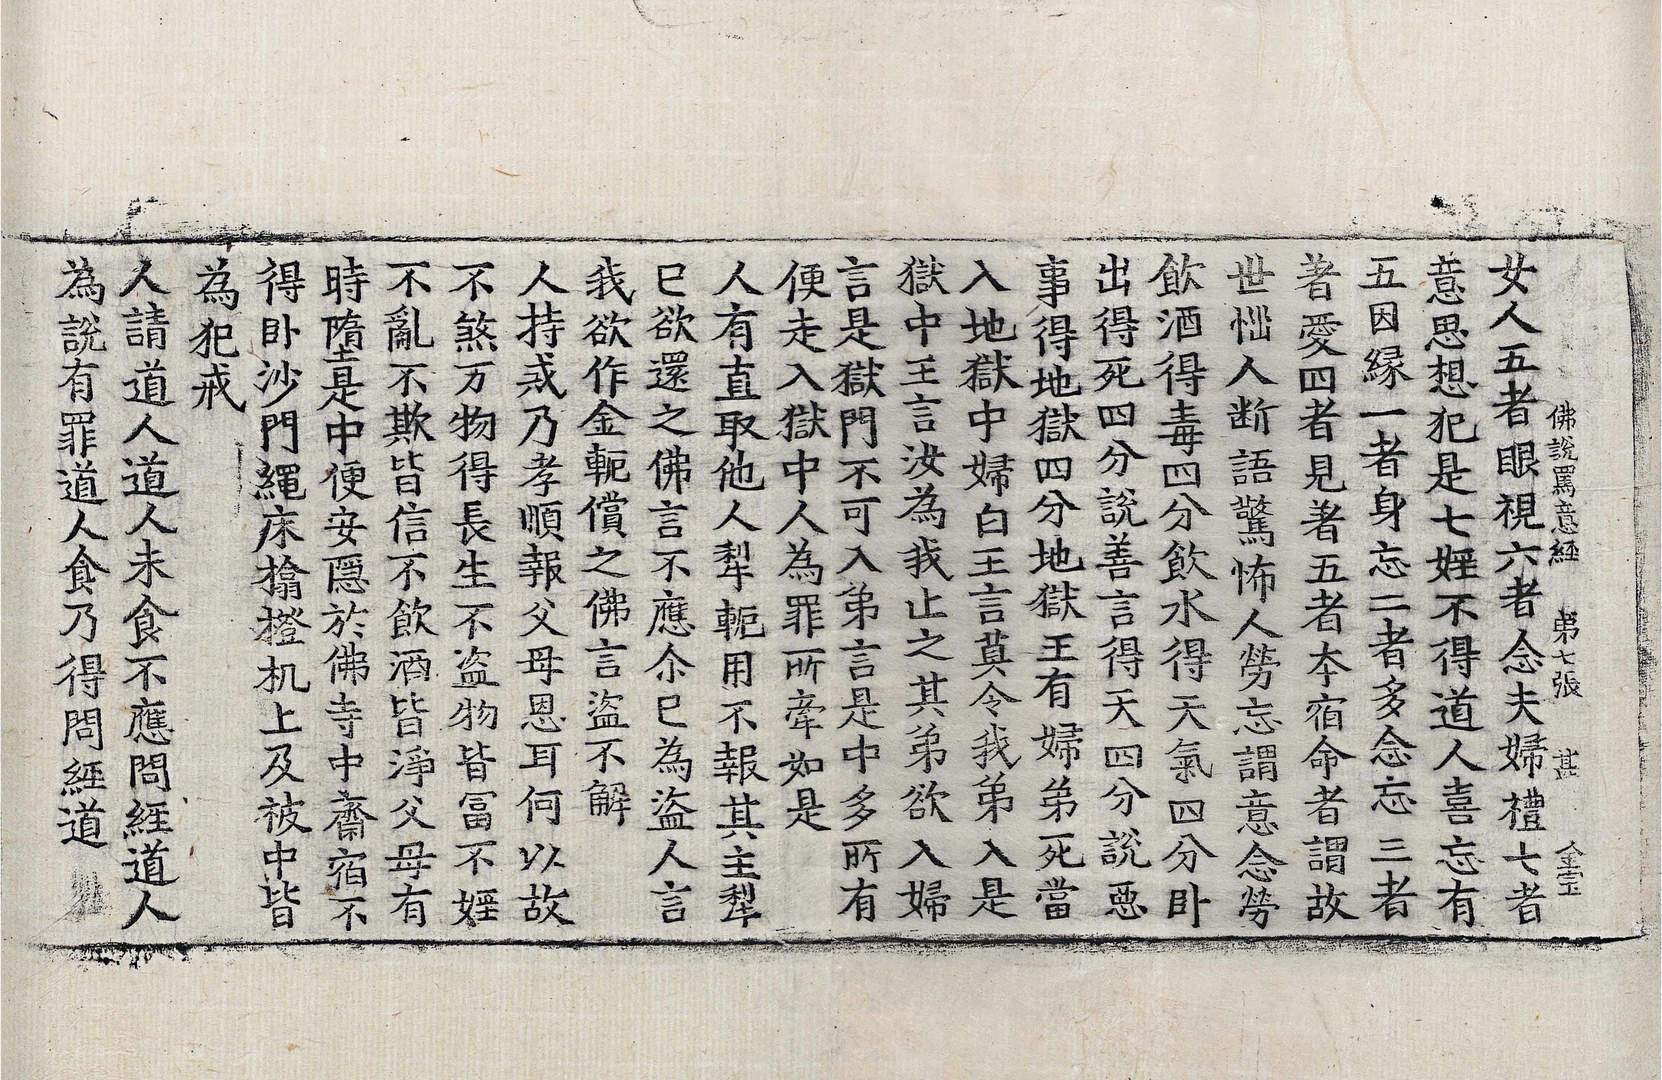 佛說罵意經 第七張 甚 金宝
女人五者眼視六者念夫婦禮七者
意思想犯是七婬不得道人喜忘有
五因緣一者身忘二者多念忘三者
著愛四者見著五者本宿命者謂故
世惱人断語驚怖人勞忘謂意念勞
飲酒得毒四分飲水得天氣四分卧
出得死四分說善言得天四分說惡
事得地獄四分地獄王有婦弟死當
入地獄中婦白王言莫令我弟入是
獄中王言汝為我止之其弟欲入婦
言是獄門不可入弟言是中多所有
便走入獄中人為罪所牽如是
人有直取他人犁軛用不報其主犁
已欲還之佛言不應尒已為盜人言
我欲作金軛償之佛言盜不解
人持戒乃孝順報父母恩耳何以故
不煞万物得長生不盜物皆冨不婬
不亂不欺皆信不飲酒皆淨父母有
時墮是中便安隱於佛寺中齋宿不
得卧沙門繩床㯓橙机上及被中皆
為犯戒
人請道人道人未食不應問經道人
為說有罪道人食乃得問經道